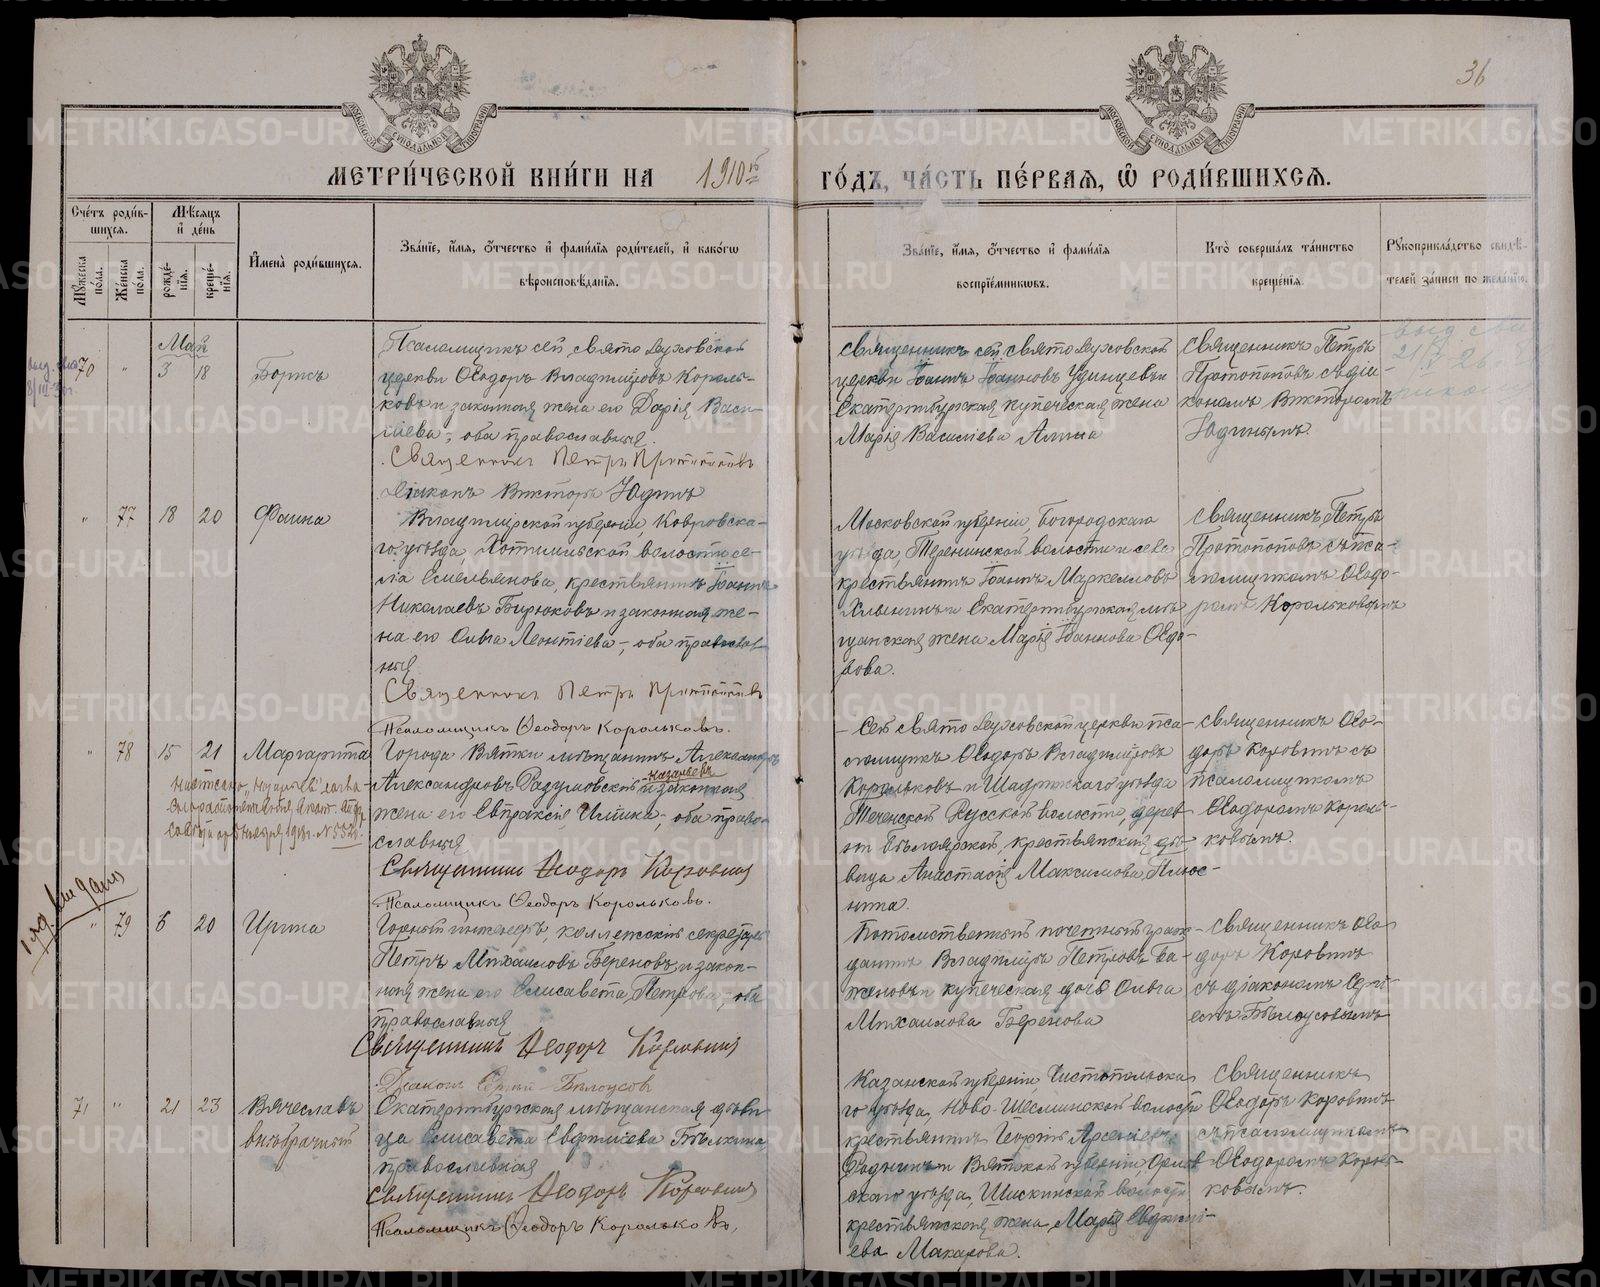 36
МЕТРИ́ЧЕСКОЙ КНИ́ГИ НА 1910й ГО́ДЪ, ЧА́СТЬ ПЕ́РВАЯ, Ѽ РОДИ́ВШИХСЯ.
Сче́тъ роди́в-
шихся.
Мѣ́сяцъ
и҆ де́нь
Мꙋ́жеска по́ла.
Же́нска по́ла.
рожде́-
нїя.
креще́-
нїя.
И҆мена̀ роди́вшихся.
Зва́нїе, и҆́мя, ѻ҆́тчество и҆ фами́лїя роди́телей, и҆ како́гѡ
вѣроисповѣ́данїя.
Зва́нїе, и҆́мя, ѻ҆́тчество и҆ фами́лїя
воспрїе́мникѡвъ.
Кто̀ соверша́лъ та́инство
креще́нїя.
Рꙋкоприкла́дство свидѣ́-
телей за́писи по жела́нїю.
Май
70 " 3 18 Борисъ
Псаломщикъ сей Свято Духовской
церкви Ѳеодоръ Владиміровъ Король-
ковъ и законная жена его Дарія Васи-
ліева, оба православные.
Священникъ Петръ Протопоповъ
Діаконъ Викторъ Юдинъ
Священникъ сей Свято Духовской
церкви Іоаннъ Іоанновъ Удинцевъ и
Екатеринбургская купеческая жена
Марія Василіева Алина
Священникъ Петръ
Протопоповъ съ діа-
кономъ Викторомъ
Юдинымъ.
" 77 18 20 Фаина
Владимірской губерніи, Ковровска-
го уѣзда, Хотимльской волости се-
ла Емельянова, крестьянинъ Іоаннъ
Николаевъ Бирюковъ и законная же-
на его Ольга Леонтіева, оба православ-
ные
Священникъ Петръ Протопоповъ
Псаломщикъ Ѳеодоръ Корольковъ.
Московской губерніи, Богородскаго
уѣзда, Теренинской волости и села
крестьянинъ Іоаннъ Маркелловъ
и Екатеринбургская мѣ-
щанская жена Марія Іоаннова Ѳедо-
рова.
Священникъ Петръ
Протопоповъ съ пса-
ломщикомъ Ѳеодо-
ромъ Корольковымъ
" 78 15 21 Маргарита
Города Вятки мѣщанинъ Александръ
Александровъ Радумовской и законная
Назарьевъ
жена его Евпраксія Ильина, оба право-
славные
Священникъ Ѳеодоръ Коровинъ
Псаломщикъ Ѳеодоръ Корольковъ.
Сей Свято Духовской церкви пса-
ломщикъ Ѳеодоръ Владиміровъ
Корольковъ и Шадринскаго уѣзда
Теченской Русской волости, дерев-
ни Бѣлоярской, крестьянская дѣ-
вица Анастасія Максимова Плюс-
нина.
Священникъ Ѳео-
доръ Коровинъ съ
псаломщикомъ
Ѳеодоромъ Король-
ковымъ.
" 79 6 20 Ирина
Горный инженеръ, коллежскій секретарь
Петръ Михаиловъ Береновъ и закон-
ная жена его Елисавета Петрова, оба
православные
Священникъ Ѳеодоръ Коровинъ
Діаконъ Сергій Бѣлоусовъ
Потомственный почетный граж-
данинъ Владиміръ Петровъ Ба-
женовъ и купеческая дочь Ольга
Михаилова Беренова
Священникъ Ѳео-
доръ Коровинъ
съ діакономъ Серг-
емъ Бѣлоусовымъ
71 " 21 23 Вячеславъ
внѣбрачный
Екатеринбургская мѣщанская дѣви-
ца Елисавета Евфиміева Бѣлкина,
православная
Священникъ Ѳеодоръ Коровинъ
Псаломщикъ Ѳеодоръ Корольковъ.
Казанской губерніи Чистопольска-
го уѣзда, Ново-Шешминской волости
крестьянинъ Георгій Арсеніевъ
Родинъ и Вятской губерніи, Орлов-
скаго уѣзда, волости
крестьянская жена Марія Евфимі-
ева Макарова.
Священникъ
Ѳеодоръ Коровинъ
съ псаломщикомъ
Ѳеодоромъ Король-
ковымъ.
METRIKI.GASO-URAL.RU